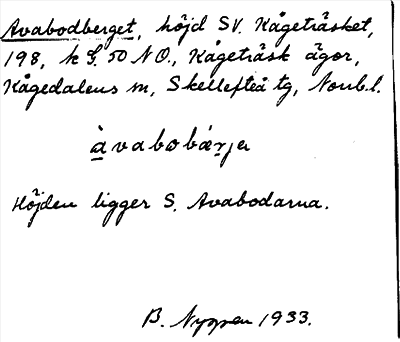 Avabodberget, höjd SV. Kågeträsket,
198, k G. 50 NO., Kågeträsk ägor,
Kågedalens m, Skellefteå tg, Norrb.l.
àvabobárja
Höjden ligger S. Avabodarna.
B. Nygren 1933.